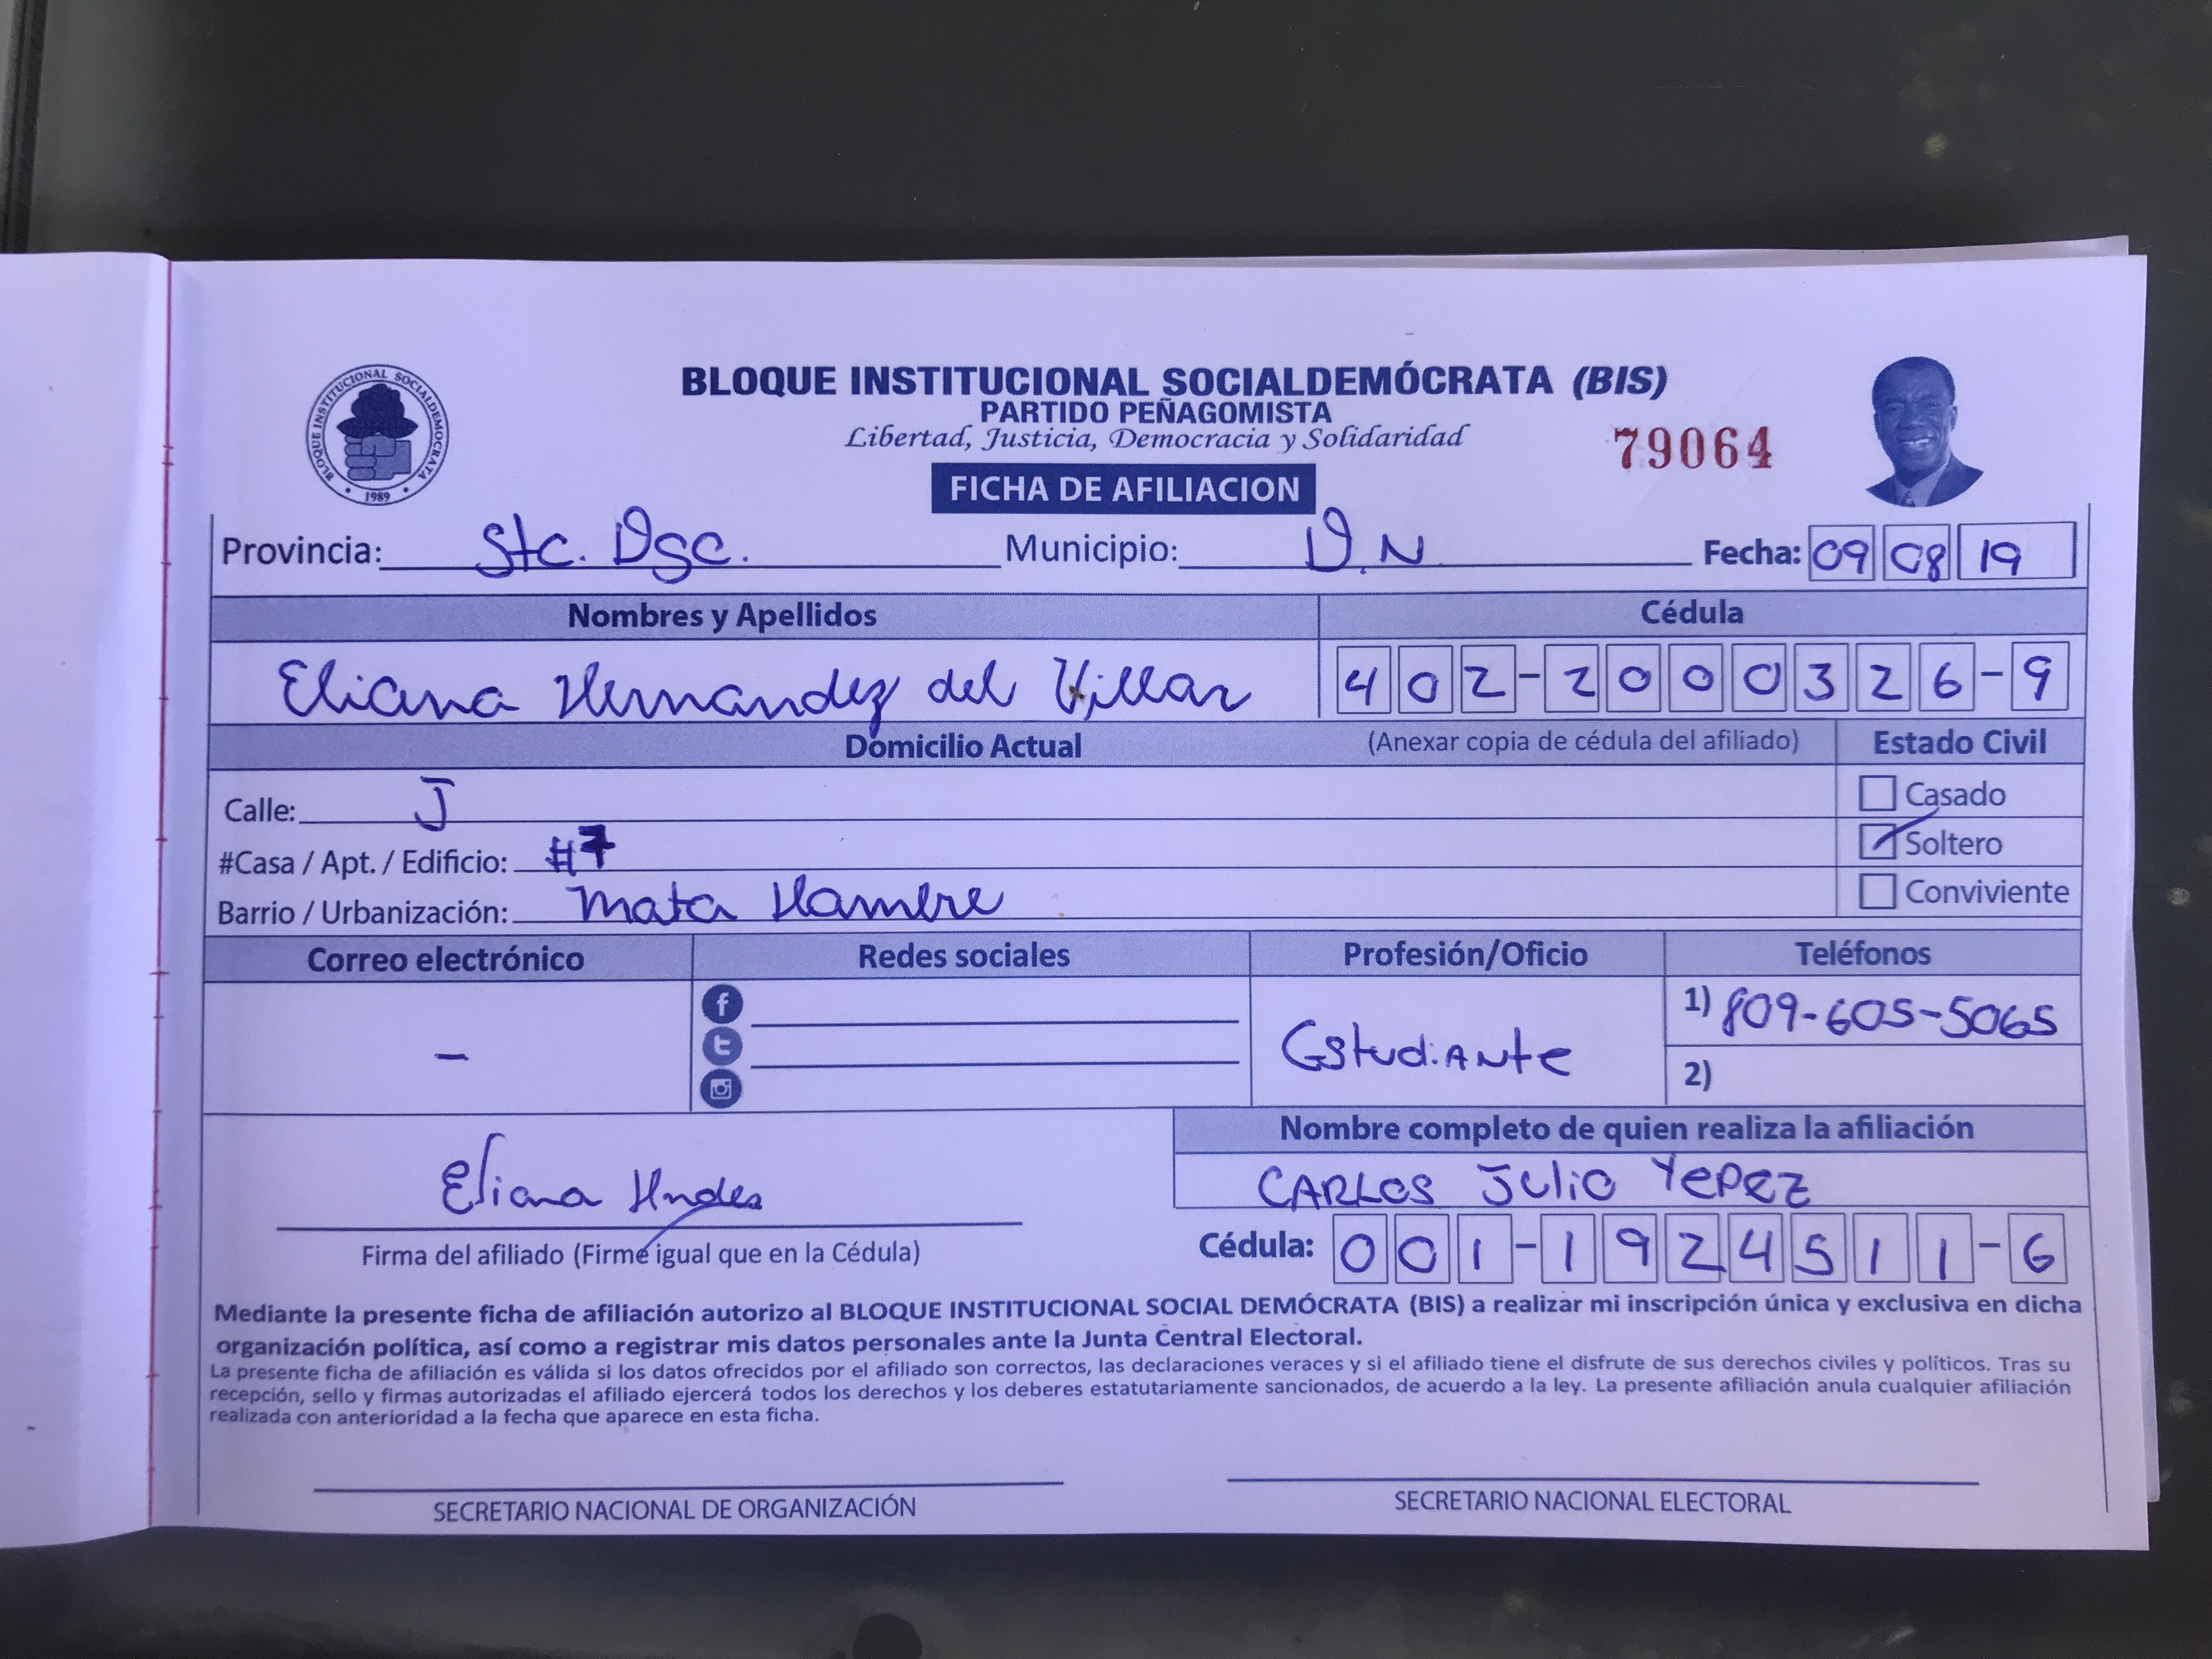 BLOQUE INSTITUCIONAL SOCIALDEMOCRATA
1989
BLOQUE INSTITUCIONAL SOCIALDEMÓCRATA (BIS)
PARTIDO PEÑAGOMISTA
Libertad, Justicia, Democracia y Solidaridad
79064
FICHA DE AFILIACION
Provincia: Sto. Dgo. Municipio: D.N Fecha: 09 08 19
Nombres y Apellidos Cédula
Eliana Hernandez del Villar 402-2000326-9
Domicilio Actual (Anexar copia de cédula del afiliado) Estado Civil
Calle: J Casado
#Casa / Apt. / Edificio: #7 Soltero
Barrio / Urbanización: Mata Hambre Conviviente
Correo electrónico Redes sociales Profesión/Oficio Teléfonos
- Estudiante 1) 809-605-5065
2)
Nombre completo de quien realiza la afiliación
Eliana Hndez CARLOS Julio Yepez
Firma del afiliado (Firme igual que en la Cédula) Cédula: 001-1924511-6
Mediante la presente ficha de afiliación autorizo al BLOQUE INSTITUCIONAL SOCIAL DEMÓCRATA (BIS) a realizar mi inscripción única y exclusiva en dicha
organización política, así como a registrar mis datos personales ante la Junta Central Electoral.
La presente ficha de afiliación es válida si los datos ofrecidos por el afiliado son correctos, las declaraciones veraces y si el afiliado tiene el disfrute de sus derechos civiles y políticos. Tras su
recepción, sello y firmas autorizadas el afiliado ejercerá todos los derechos y los deberes estatutariamente sancionados, de acuerdo a la ley. La presente afiliación anula cualquier afiliación
realizada con anterioridad a la fecha que aparece en esta ficha.
SECRETARIO NACIONAL DE ORGANIZACIÓN SECRETARIO NACIONAL ELECTORAL